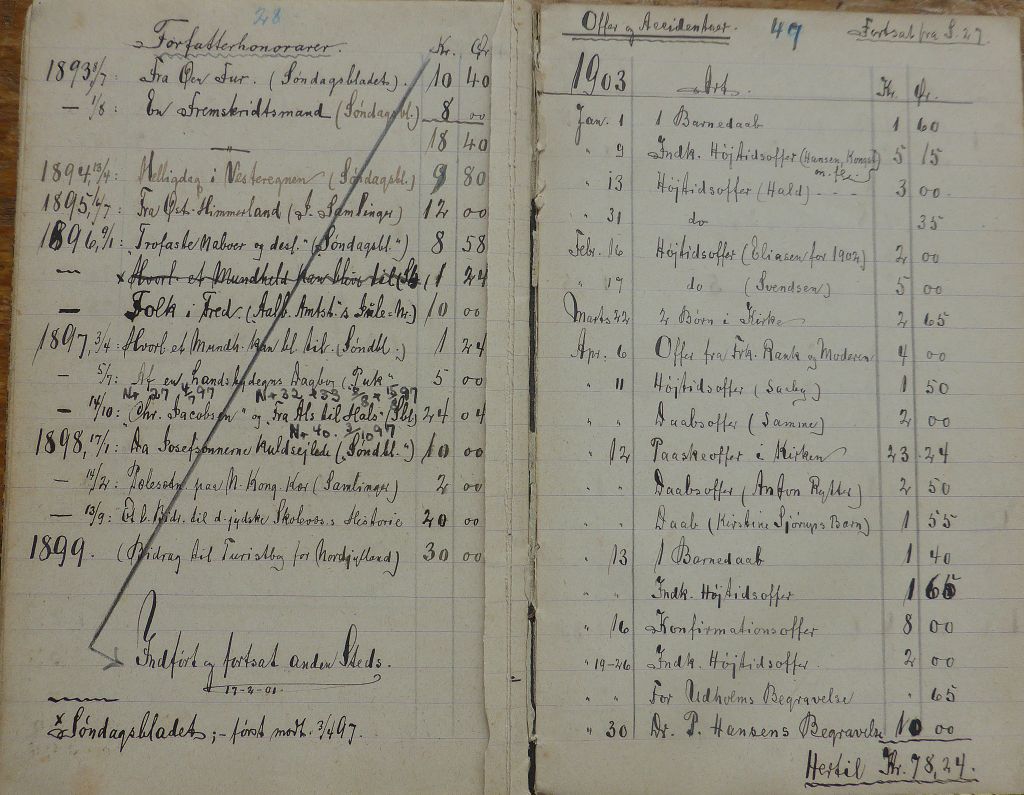 28
Forfatterhonorarer. Kr. Ør
1893 8/7: Fra Øen Fur. (Søndagsbladet). 10 40
— 1/8: En Fremskridtsmand (Søndagsbl.) 8 00
18 40
1894, 13/4: Helligdag i Vesteregnen (Søndagsbl.) 9 80
1895, /7: Fra Øst-Himmerland (J. Samlinger) 12 00
1896, 9/1: "Trofaste Naboer og desl." (Søndagsbl.") 8 58
— x Hvorl. et Mundheld kan blive til (Sb. 1 24
— Folk i Fred (Aalb. Amtst.'s Jule-Nr.) 10 00
1897, 3/4: Hvorl. et Mundh. kan bl. til. (Søndbl.) 1 24
— 5/7: Af en Landsbydegns Dagbog ("Puk" 5 00
Nr 27 4/7 97 Nr 32 + 33 8/8 + 15/8 97
— 14/10: "Chr. Jacobsen" og "Fra Als til Hals" (Sbl.) 24 04
Nr 40. 3/10 97
1898, 17/1: Da Josefsønnerne kuldsejlede ("Søndbl.") 10 00
— 14/2: paa N. Kong. Kær (Samlinger) 2 00
— 13/9: Et l. Bidr. til d. jydske Skolevæs.s Historie 20 00
1899. (Bidrag til Turistbog for Nordjylland) 30 00
Indført og fortsat anden Steds.
17-2-01.
x Søndagsbladet; - først modt. 3/4 97.
Offer og Accidentser. 47 Fortsat fra S. 27.
1903 Art. Kr. Ør.
Jan. 1 1 Barnedaab 1 60
" 9 Indk. Højtidsoffer (Hansen, Kongst. 5 15
m. fl.)
" 13 Højtidsoffer (Hald) - - - 3 00
" 31 do 35
Febr. 16 Højtidsoffer (Eliasen for 1902) 2 00
" 17 do (Svendsen) 5 00
Marts 22 2 Børn i Kirke 2 65
Apr. 6 Offer fra Frk. Rank og Moderen 4 00
" 11 Højtidsoffer (Saeby) 1 50
" " Daabsoffer (Samme) 2 00
" 12 Paaskeoffer i Kirken 23 24
" " Daabsoffer (Anton Rytter) 2 50
" " Daab (Kirstine Sjørups Barn) 1 55
" 13 1 Barnedaab 1 40
Indk. Højtidsoffer 1 65
" 16 Konfirmationsoffer 8 00
" 19-26 Indk. Højtidsoffer. 2 00
" " For Udholms Begravelse " 65
" 30 Dr. P. Hansens Begravelse 10 00
Hertil Kr. 78,24.